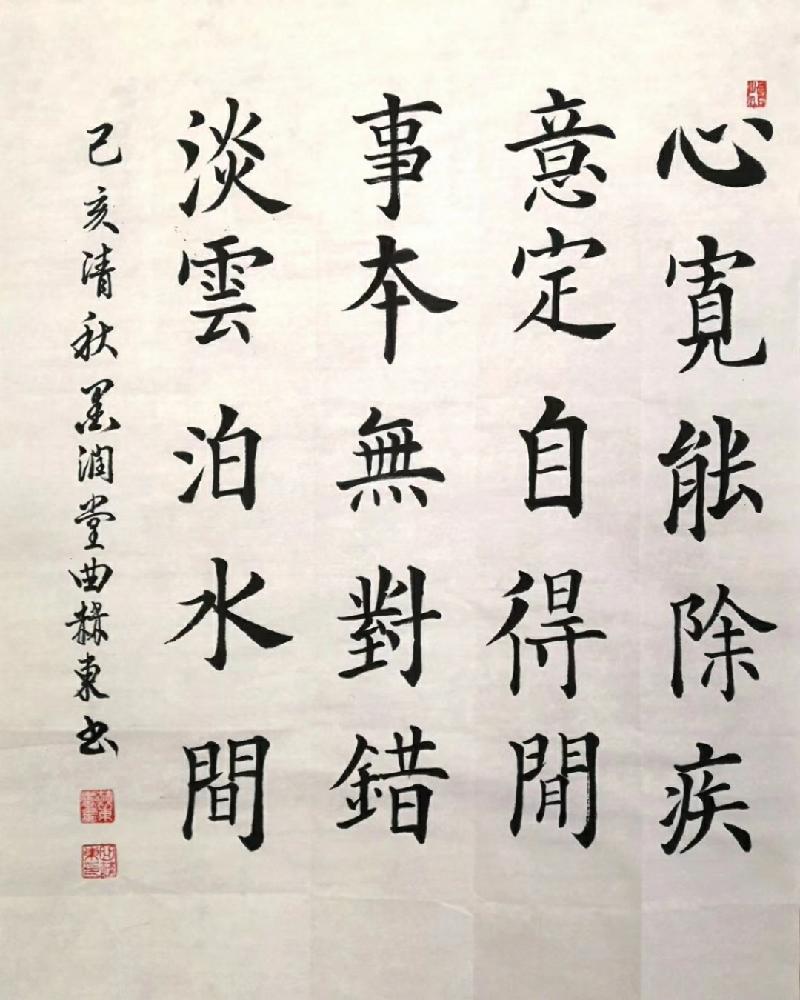 心寬能除疾
意定自得閒
事本無對錯
淡雲泊水間
己亥清秋墨潤堂曲赫東书